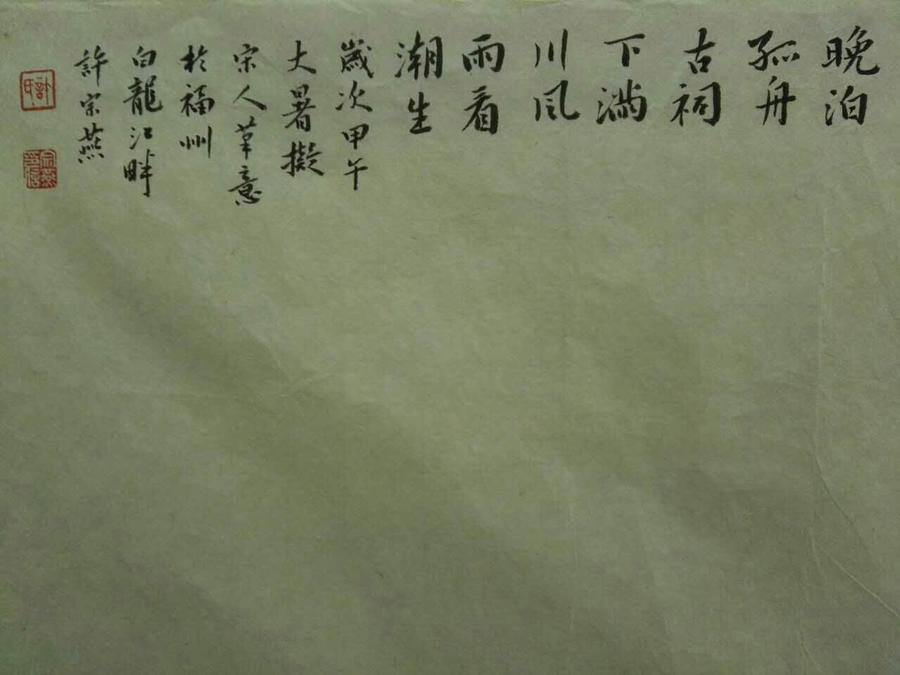 晚泊
孤舟
古祠
下滿
川風
雨看
潮生
歲次甲午
大暑擬
宋人筆意
於福州
白龍江畔
許宗燕
許氏
宗燕